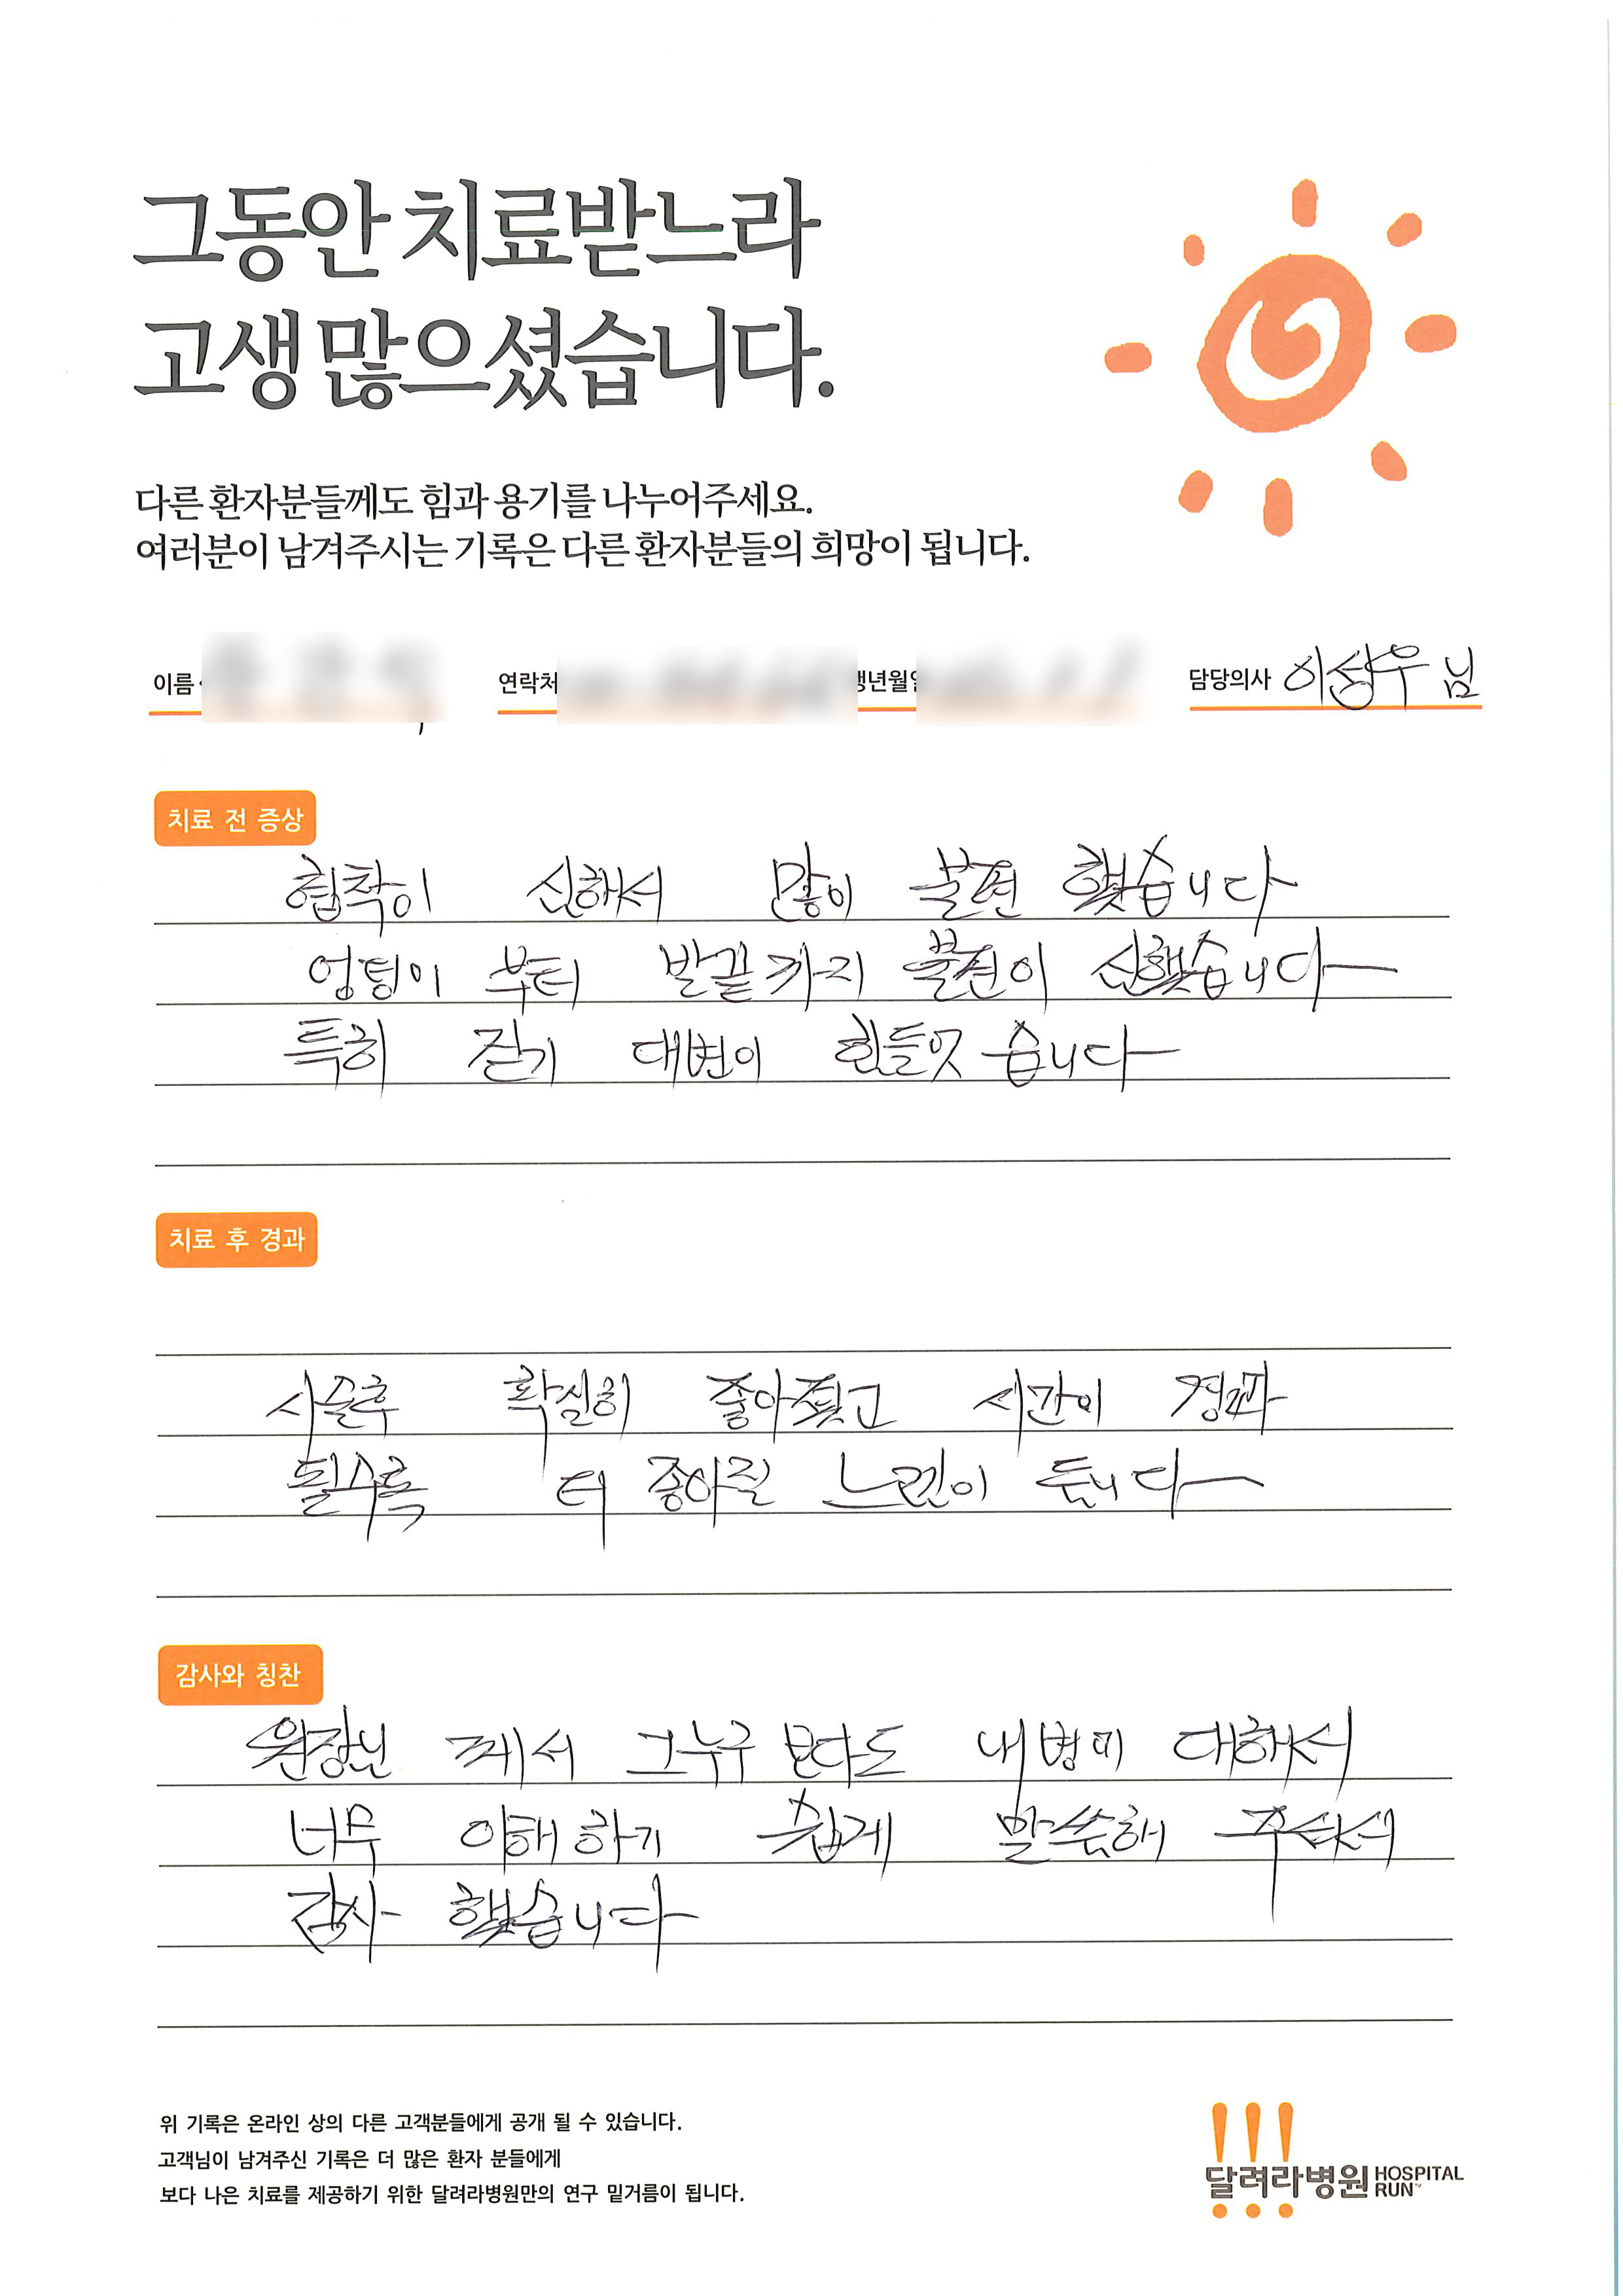 그동안 치료받느라
고생 많으셨습니다.
다른 환자분들께도 힘과 용기를 나누어주세요.
여러분이 남겨주시는 기록은 다른 환자분들의 희망이 됩니다.
이름 연락처 생년월일 담당의사 이상우 님
치료 전 증상
협착이 심해서 많이 불편 했습니다
엉덩이 부터 발끝까지 불편이 심했습니다
특히 걷기 대변이 힘들엇 습니다
치료 후 경과
시술후 확실히 좋아졌고 시간이 경과
될수록 더 좋아질 느낌이 듭니다
감사와 칭찬
원장님 께서 그누구 보다도 내병에 대해서
너무 이해하기 쉽게 말씀해 주셔서
감사 했습니다
위 기록은 온라인 상의 다른 고객분들에게 공개 될 수 있습니다.
고객님이 남겨주신 기록은 더 많은 환자 분들에게
보다 나은 치료를 제공하기 위한 달려라병원만의 연구 밑거름이 됩니다.
달려라병원 HOSPITAL RUN